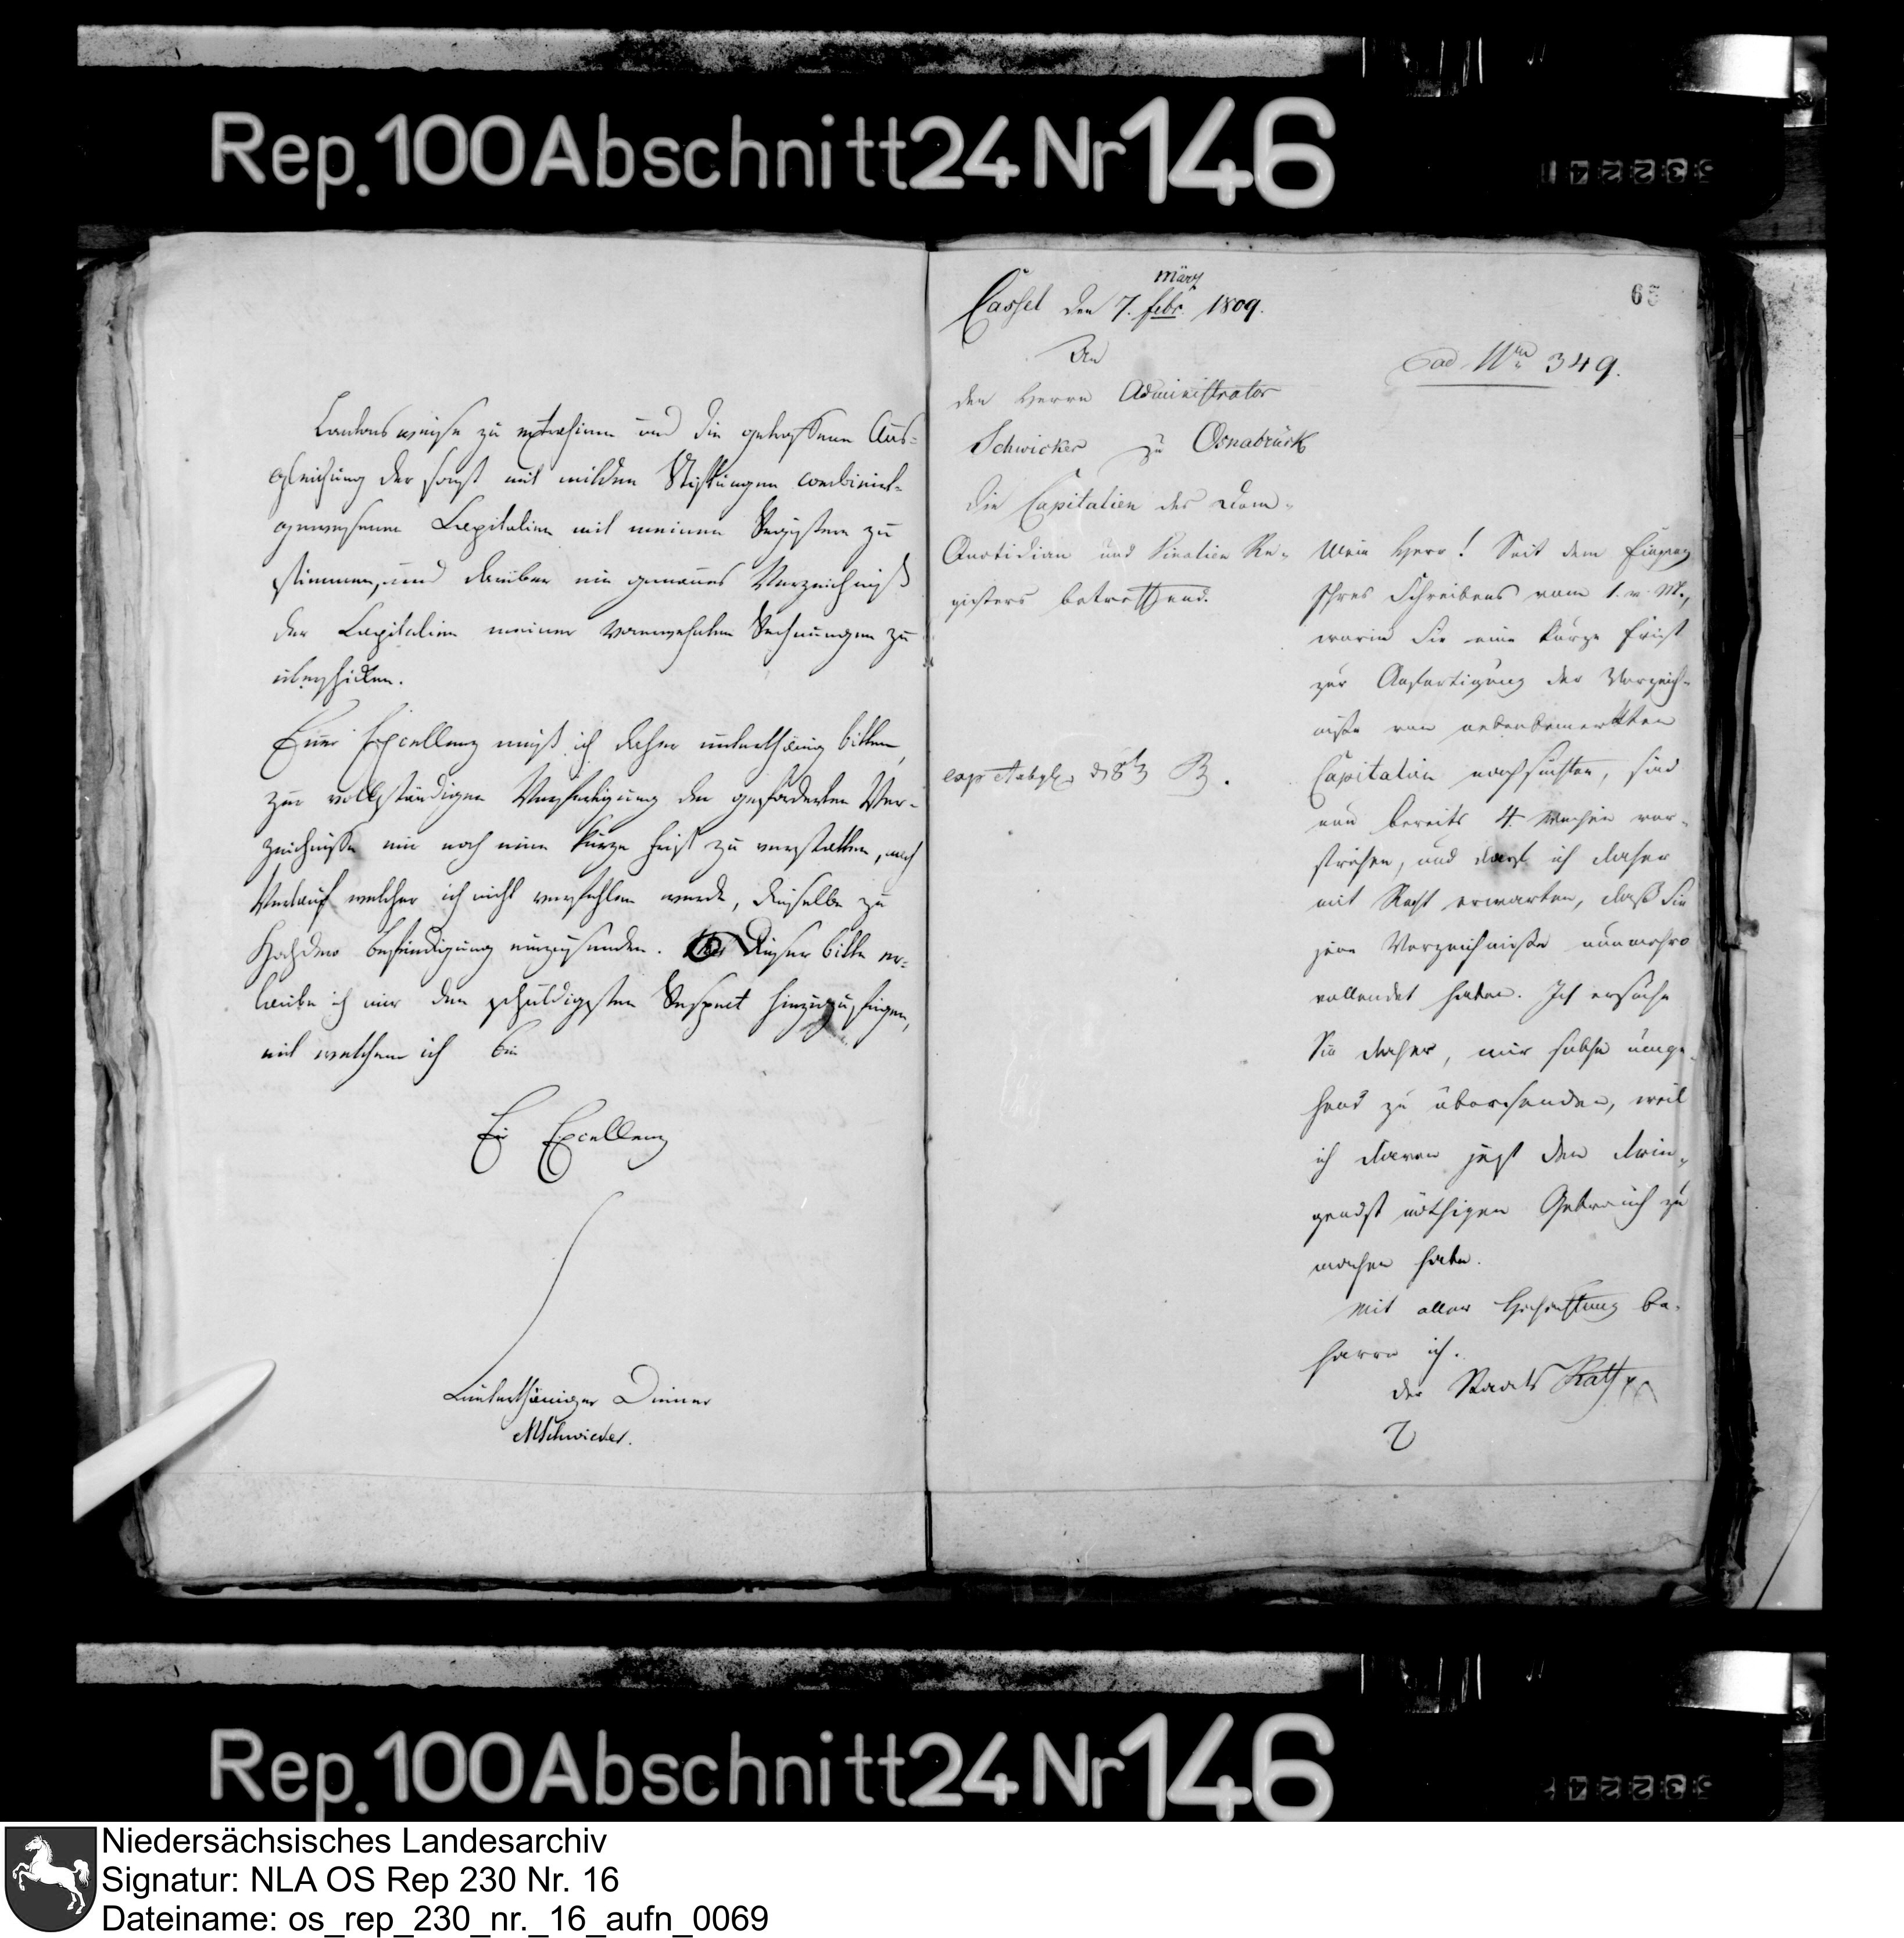 Rep. 100 Abschnitt 24 Nr 146
Cantons weise zu extrahiren und die getroffene Aus-
gleichung der sonst mit milden Stiftungen combinirt-
gewesenen Capitalien mit meinen Registern zu
stimmen, und darüber ein genaues Verzeichniß
der Capitalien meiner Rechnungen zu
überschicken.
Euer Excellenz muß ich daher unterthänig bitten,
zur vollständigen Verfertigung der geforderten Ver-
zeichnisse mir noch eine kurze Frist zu verstatten, nach
Verlauf welcher ich nicht verfehlen werde, dieselbe zu
einzusenden. Dieser Bitte er-
laube ich mir den schuldigsten Respect hinzuzufügen,
mit welchem ich bin
Ew Excellenz
unterthäniger Diener
Schwicker.
65
Cassel den 7. febr. märz 1809.
An
den Herrn Administrator
Schwicker zu Osnabrück
ad Nrm 349.
die Capitalien des Dom-
Quotidian und Vicarien Re-
gisters betreffend.
Mein Herr! Seit dem Eingang
Ihres Schreibens vom 1. v. M.,
worin Sie eine kurze Frist
zur Anfertigung der Verzeich-
niße von nebenbemerkten
Capitalien nachsuchten, sind
nun bereits 4 Wochen ver-
strichen, und darf ich daher
mit Recht erwarten, daß Sie
jene Verzeichniße nunmehro
vollendet haben. Ich ersuche
Sie daher, mir solche umge-
hend zu übersenden, weil
ich davon jetzt den drin-
gendst nöthigen Gebrauch zu
machen habe.
Mit aller Hochachtung be-
harre ich.
der Staats Rath
Rep. 100 Abschnitt 24 Nr 146
Niedersächsisches Landesarchiv
Signatur: NLA OS Rep 230 Nr. 16
Dateiname: os_rep_230_nr._16_aufn_0069